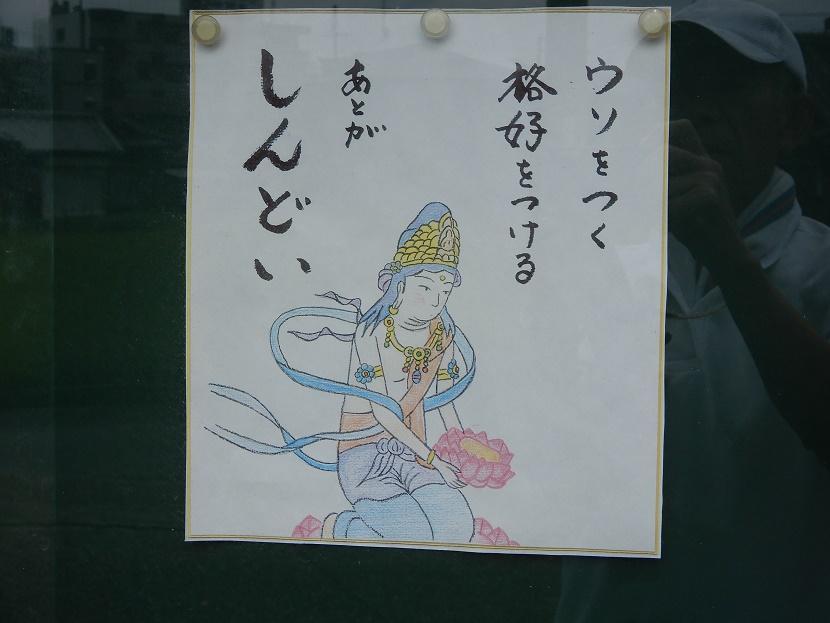 ウソをつく
格好をつける
あとが
しんどい